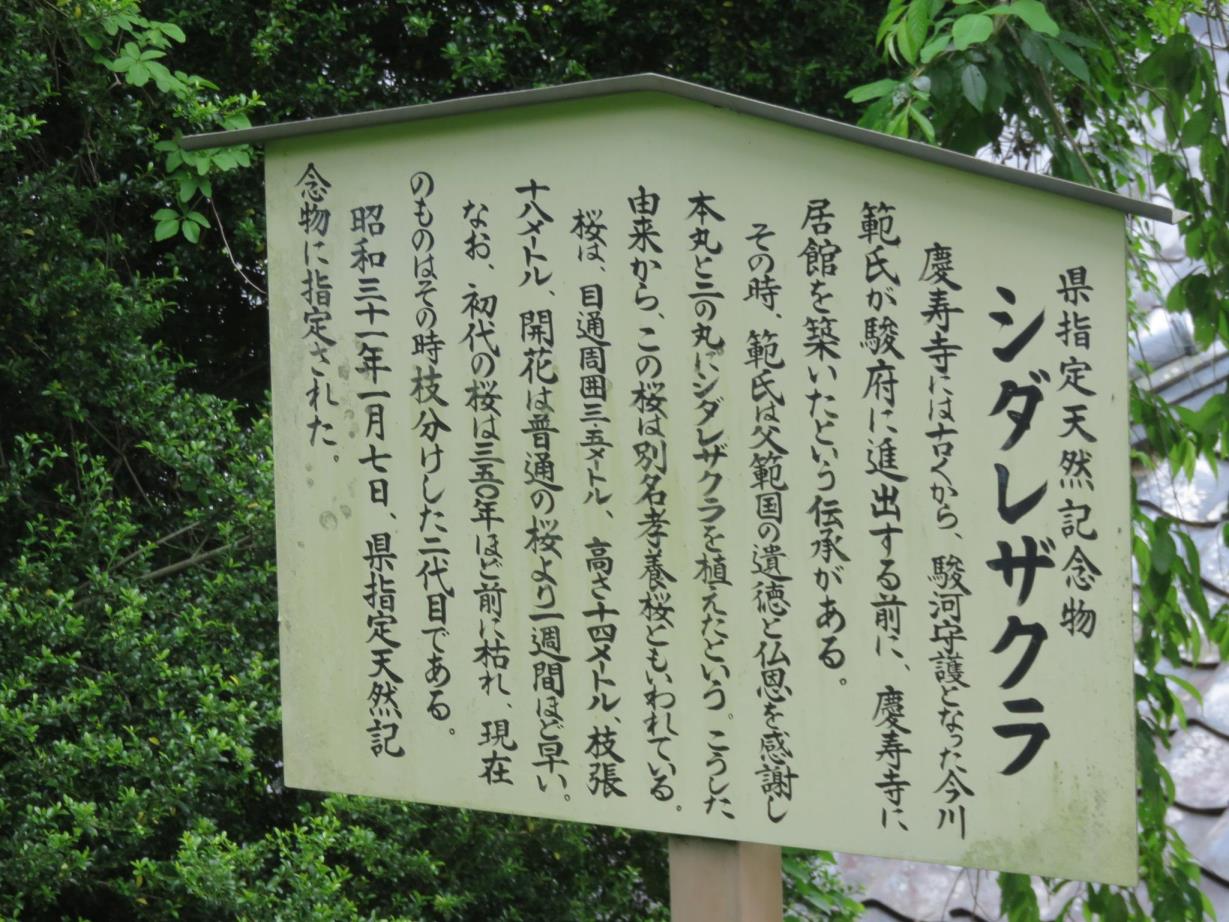 県指定天然記念物
シダレザクラ
慶寿寺には古くから、駿河守護となった今川
範氏が駿府に進出する前に、慶寿寺に
居館を築いたという伝承がある。
その時、範氏は父範国の遺徳と仏恩を感謝し
本丸と二の丸にシダレザクラを植えたという。こうした
由来から、この桜は別名孝養桜ともいわれている。
桜は、目通周囲三・五メートル、高さ十四メートル、枝張
十八メートル、開花は普通の桜より一週間ほど早い。
なお、初代の桜は三五〇年ほど前に枯れ、現在
のものはその時枝分けした二代目である。
昭和三十一年一月七日、県指定天然記
念物に指定された。